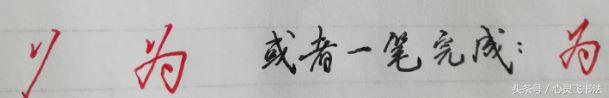 丷 为 或者一笔完成：为
头条号／心灵飞书法